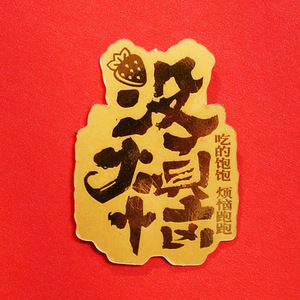 没烦恼
吃的饱饱
烦恼跑跑